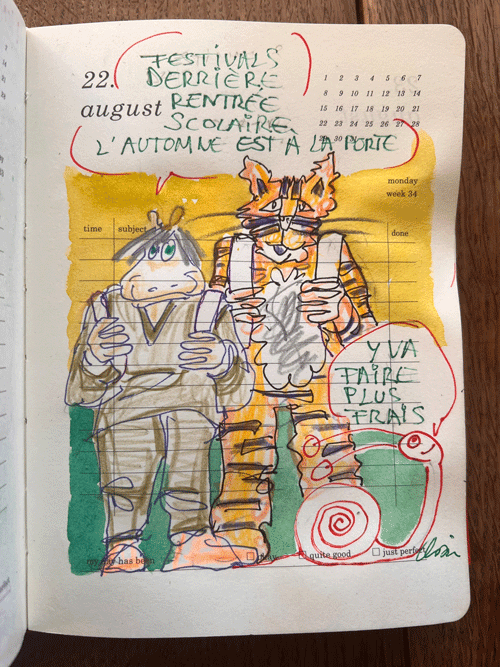 FESTIVALS
DERRIÈRE
RENTRÉE
SCOLAIRE.
L'AUTOMNE EST À LA PORTE
22.
august
1 2 3 4 5 6 7
8 9 10 11 12 13 14
15 16 17 18 19 20 21
22 23 24 25 26 27 28
29 30
monday
week 34
time subject done
Y VA
FAIRE
PLUS
FRAIS
my day has been okay quite good just perfect